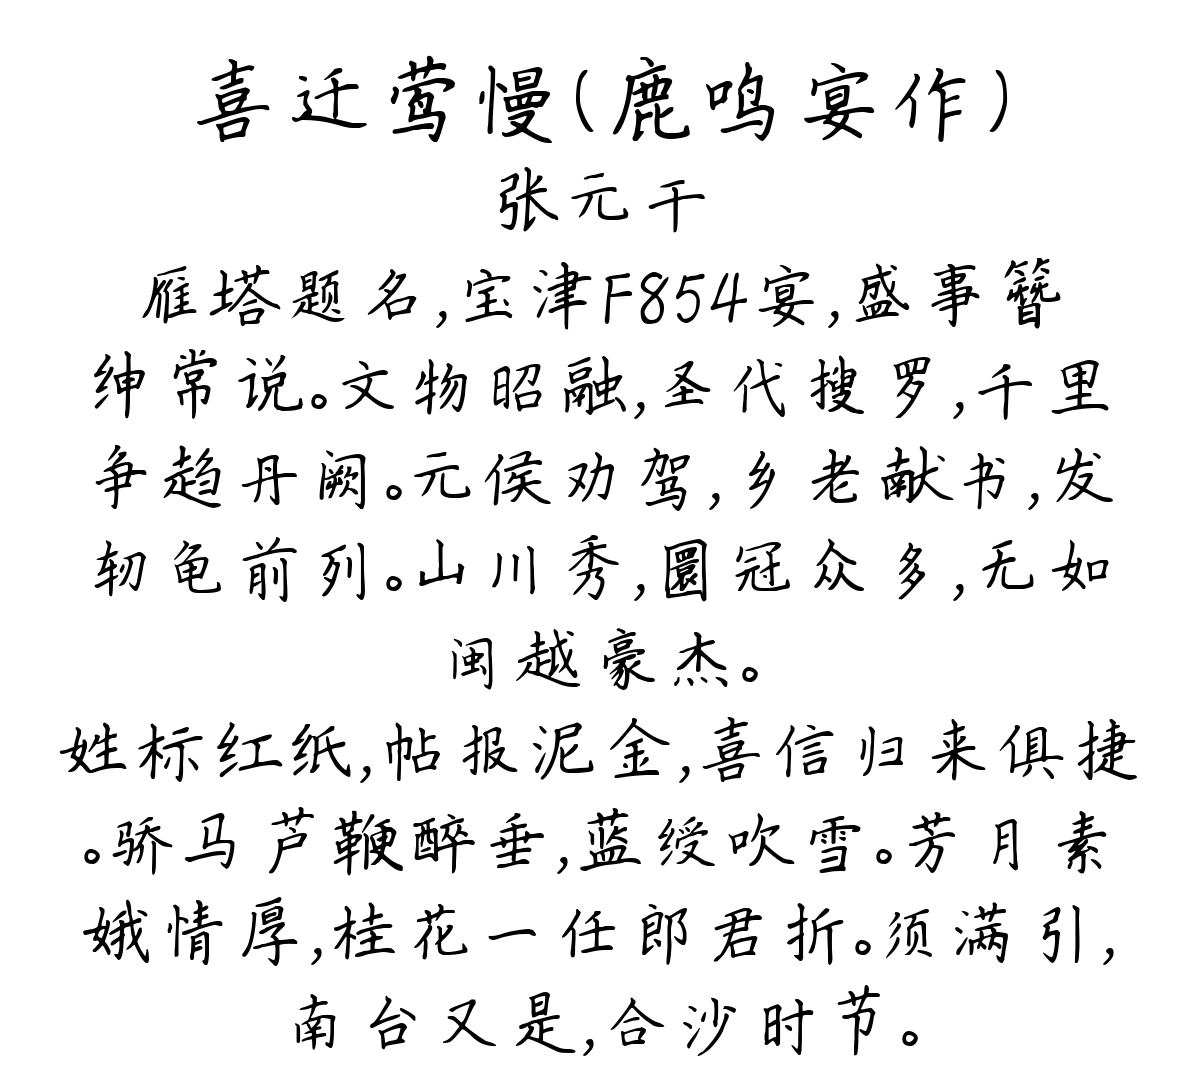 喜迁莺慢(鹿鸣宴作)
张元干
雁塔题名,宝津F854宴,盛事簪
绅常说。文物昭融,圣代搜罗,千里
争趋丹阙。元侯劝驾,乡老献书,发
轫龟前列。山川秀,圜冠众多,无如
闽越豪杰。
姓标红纸,帖报泥金,喜信归来俱捷
。骄马芦鞭醉垂,蓝绶吹雪。芳月素
娥情厚,桂花一任郎君折。须满引,
南台又是,合沙时节。